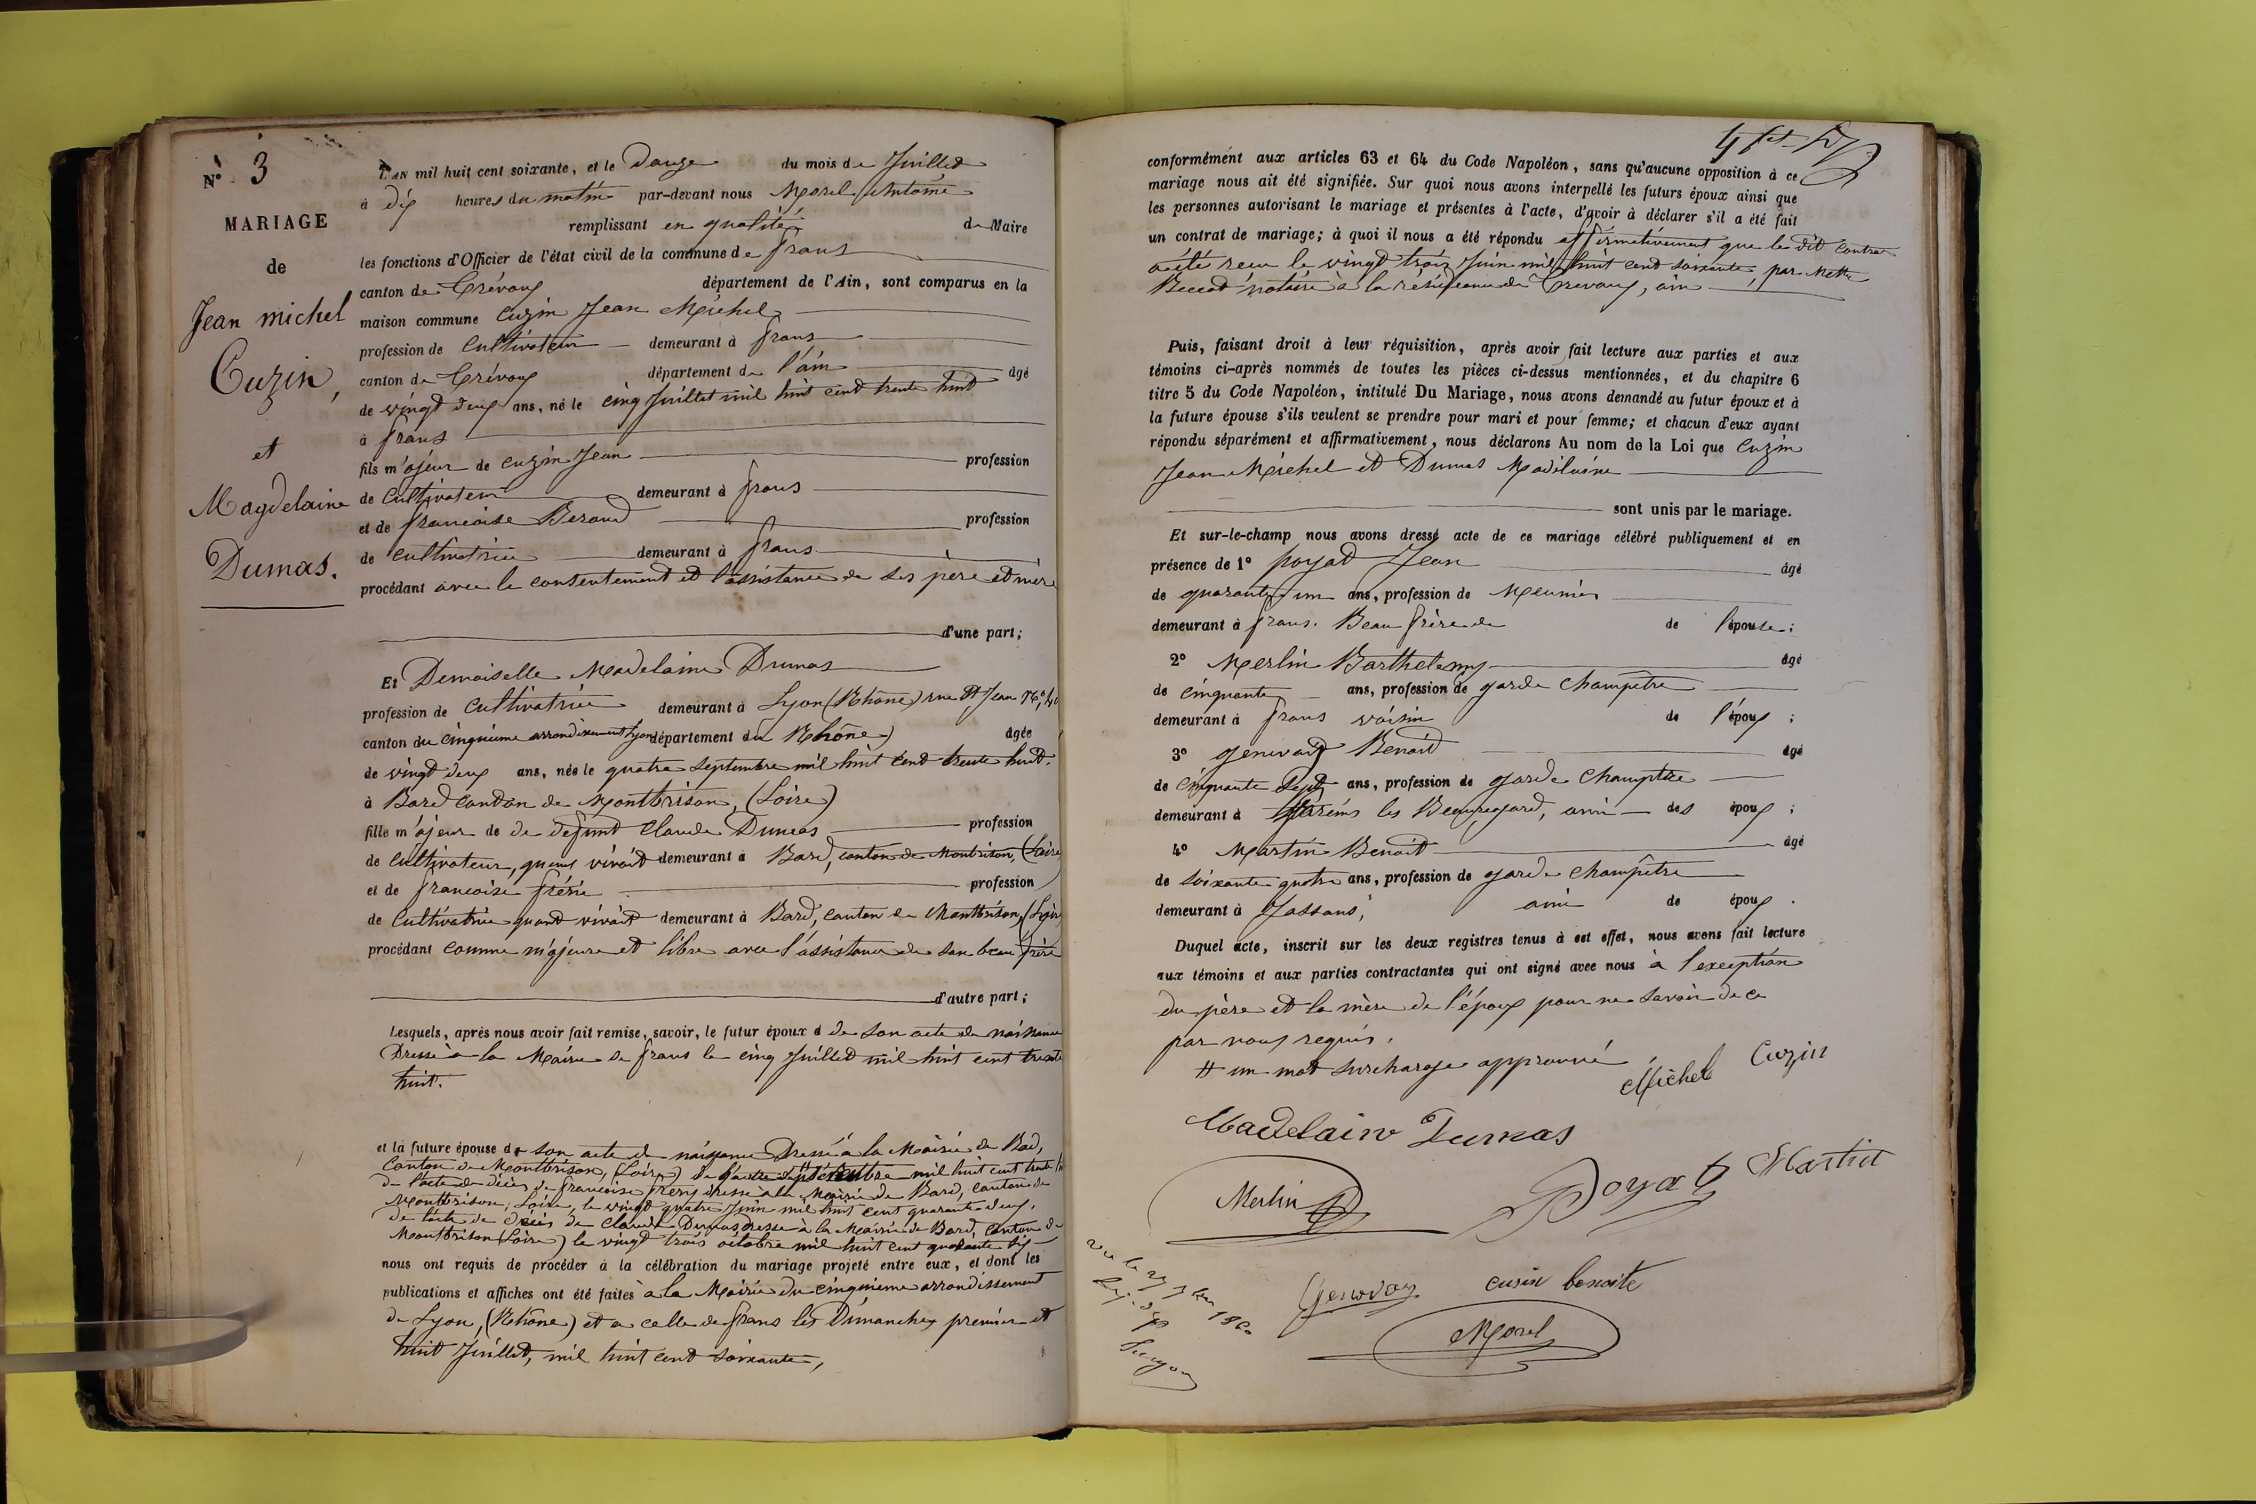 N° 3
MARIAGE
de
Jean michel
Cuzin,
et
Magdelaine
Dumas.
L'AN mil huit cent soixante, et le Douze du mois de Juillet
à dix heures du matin par-devant nous Morel Antoine
remplissant en qualité de Maire
les fonctions d'Officier de l'état civil de la commune de frans
canton de Trévoux département de l'Ain, sont comparus en la
maison commune Cuzin Jean Michel
profession de Cultivateur demeurant à frans
canton de Trévoux département de l'ain âgé
de vingt deux ans, né le cinq Juillet mil huit cent trente huit
à frans
fils majeur de Cuzin Jean profession
de Cultivateur demeurant à frans
et de francoise Beraud profession
de Cultivatrice demeurant à frans
procédant avec le consentement et l'assistance de ses père et mère
d'une part;
Et Demoiselle Madelaine Dumas
profession de Cultivatrice demeurant à Lyon (Rhône) rue St Jean
canton du cinquième arrondissement Lyon département du Rhône âgée
de vingt deux ans, née le quatre septembre mil huit cent trente huit.
à Bard canton de Montbrison, (Loire)
fille majeur de de defunt Claude Dumas profession
de Cultivateur, quand vivait demeurant à Bard, canton de Montbrison, (Loire)
et de francoise frérie profession
de Cultivatrice quand vivait demeurant à Bard, canton de Montbrison, (Loire)
procédant comme majeure et libre avec l'assistance de son beau frère
d'autre part;
Lesquels, après nous avoir fait remise, savoir, le futur époux d de son acte de naissance
Dressé à la Mairie de frans le cinq Juillet mil huit cent trente
huit.
et la future épouse de son acte de naissance Dressé à la Mairie de Bad,
Canton de Montbrison, (Loire) le quatre septembre mil huit cent trente
de l'acte de décès de francoise frery dressé à la Mairie de Bard, canton de
Montbrison, Loire, le vingt quatre Juin mil huit cent quarante deux,
de l'acte de décès de Claude Dumas dressé à la Mairie de Bard, canton de
Montbrison (Loire) le vingt trois octobre mil huit cent quarante six
nous ont requis de procéder à la célébration du mariage projeté entre eux, et dont les
publications et affiches ont été faites à la Mairie du cinquième arrondissement
de Lyon, (Rhône) et a celle de frans les Dimanches premier et
huit Juillet, mil huit cent soixante,
conformément aux articles 63 et 64 du Code Napoléon, sans qu'aucune opposition à ce
mariage nous ait été signifiée. Sur quoi nous avons interpellé les futurs époux ainsi que
les personnes autorisant le mariage et présentes à l'acte, d'avoir à déclarer s'il a été fait
un contrat de mariage; à quoi il nous a été répondu affirmativement que le dit contrat
a été recu le vingt trois Juin mil huit cent soixante, par Mettre
notaire à la résidence de Trevoux, ain
Puis, faisant droit à leur réquisition, après avoir fait lecture aux parties et aux
témoins ci-après nommés de toutes les pièces ci-dessus mentionnées, et du chapitre 6
titre 5 du Code Napoléon, intitulé Du Mariage, nous avons demandé au futur époux et à
la future épouse s'ils veulent se prendre pour mari et pour femme; et chacun d'eux ayant
répondu séparément et affirmativement, nous déclarons Au nom de la Loi que Cuzin
Jean Michel et Dumas Madelaine
sont unis par le mariage.
Et sur-le-champ nous avons dressé acte de ce mariage célébré publiquement et en
présence de 1° poyat Jean âgé
de quarante un ans, profession de Meunier
demeurant à frans. Beau frère de de l'épouse;
2° Merlin Barthelemy âgé
de cinquante ans, profession de garde Champêtre
demeurant à frans voisin de l'époux;
3° Genevaix Benoit âgé
de cinquante sept ans, profession de garde Champêtre
demeurant à les Beauregard, ami des époux;
4° Martin Benoit âgé
de soixante quatre ans, profession de garde Champêtre
demeurant à Jassans, ami de époux.
Duquel acte, inscrit sur les deux registres tenus à cet effet, nous avons fait lecture
aux témoins et aux parties contractantes qui ont signé avec nous à l'exception
du père et la mère de l'époux pour ne savoir de ce
par nous requis.
# un mot surcharge approuvé
Michel Cuzin
Madelaine Dumas
Merlin Poyat Martin
Genevay cusin benoite
Morel